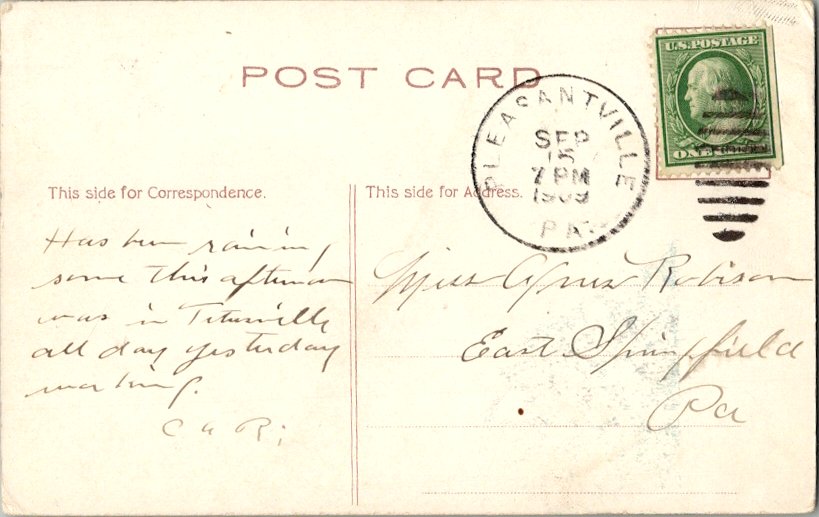 POST CARD
U.S. POSTAGE
PLEASANTVILLE
SEP
15
7 PM
1909
PA.
This side for Correspondence.
This side for Address.
Has been raining
some this afternoon
was in Titusville
all day yesterday
working.
C A R.
Miss Agnes Robison
East Springfield
Pa